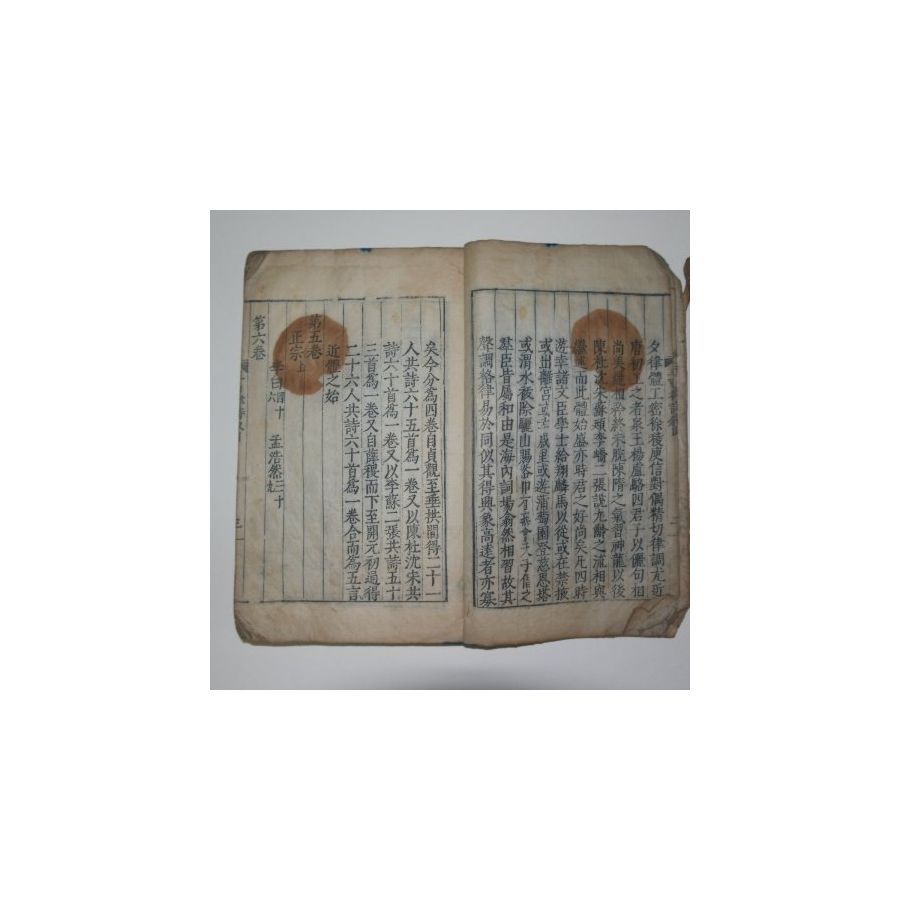 夕律體工密徐稜庾信對偶精切律調尤近
唐初工之者衆王楊盧駱四君子以儷句相
尚美麗相矜終未脫陳隋之氣習神龍以後
陳杜沈宋蘇頲李嶠二張說九齡之流相與
繼述而此體始盛亦時君之好尚矣凡四時
游幸諸文臣學士給翔麟馬以從或在禁掖
或出離宮或幸戚里或遊蒲萄園登慈恩塔
或渭水祓除驪山賜浴
羣臣皆屬和由是海內詞場翕然相習故其
聲調格律易於同似其得興象高遠者亦寡
矣今分為四卷自貞觀至垂拱間得二十一
人共詩六十五首為一卷又以陳杜沈宋共
詩六十首為一卷又以李蘇二張共詩五十
三首為一卷又自薛稷而下至開元初通得
二十六人共詩六十首為一卷合而為五言
近體之始
第五卷
正宗上
李白 孟浩然
第六卷